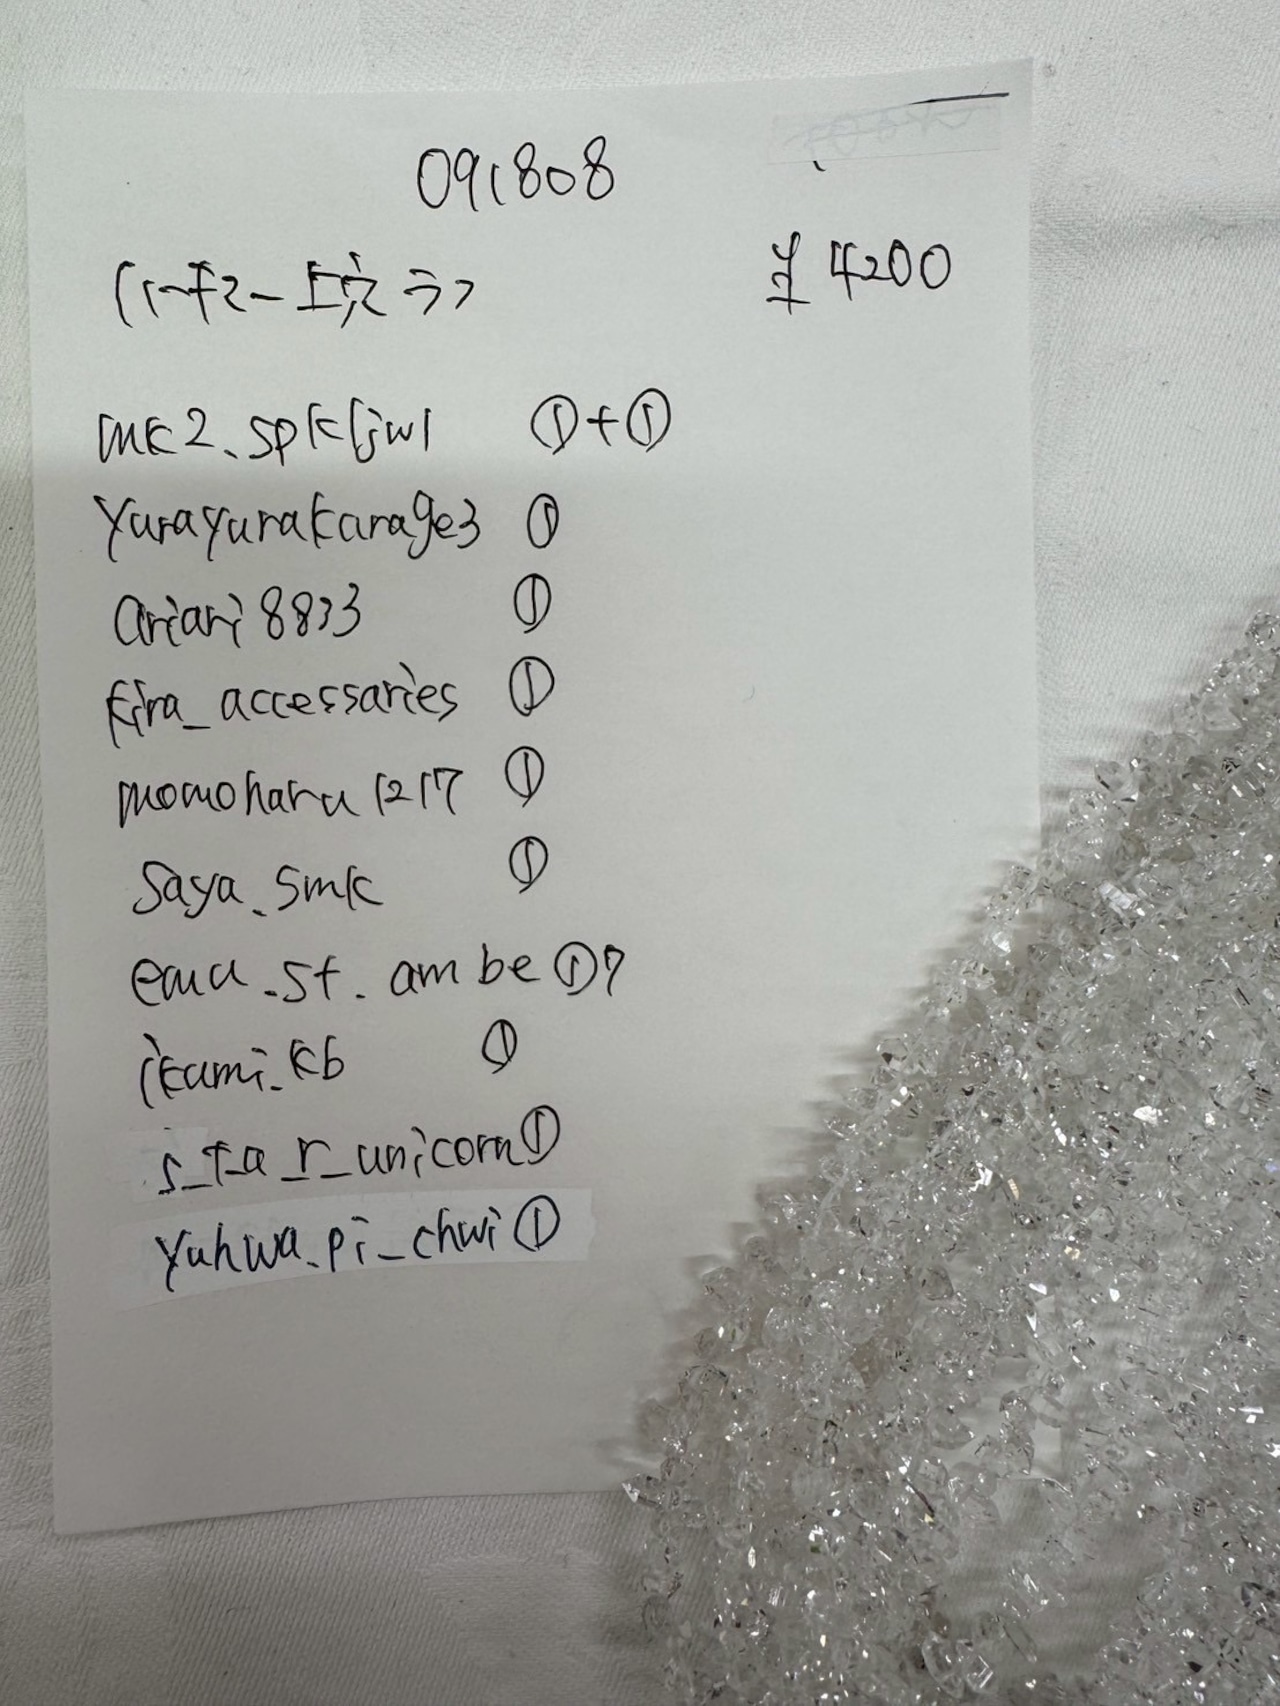 091808
¥4200
mk2.spkljwl ①+①
yurayurakarage3 ①
ariari8833 ①
kira_accessaries ①
momoharu1217 ①
saya.smk ①
emu.st.ambe ①?
ikumi.kb ①
s_t_a_r_unicorn ①
yuhwa.pi_chwi ①